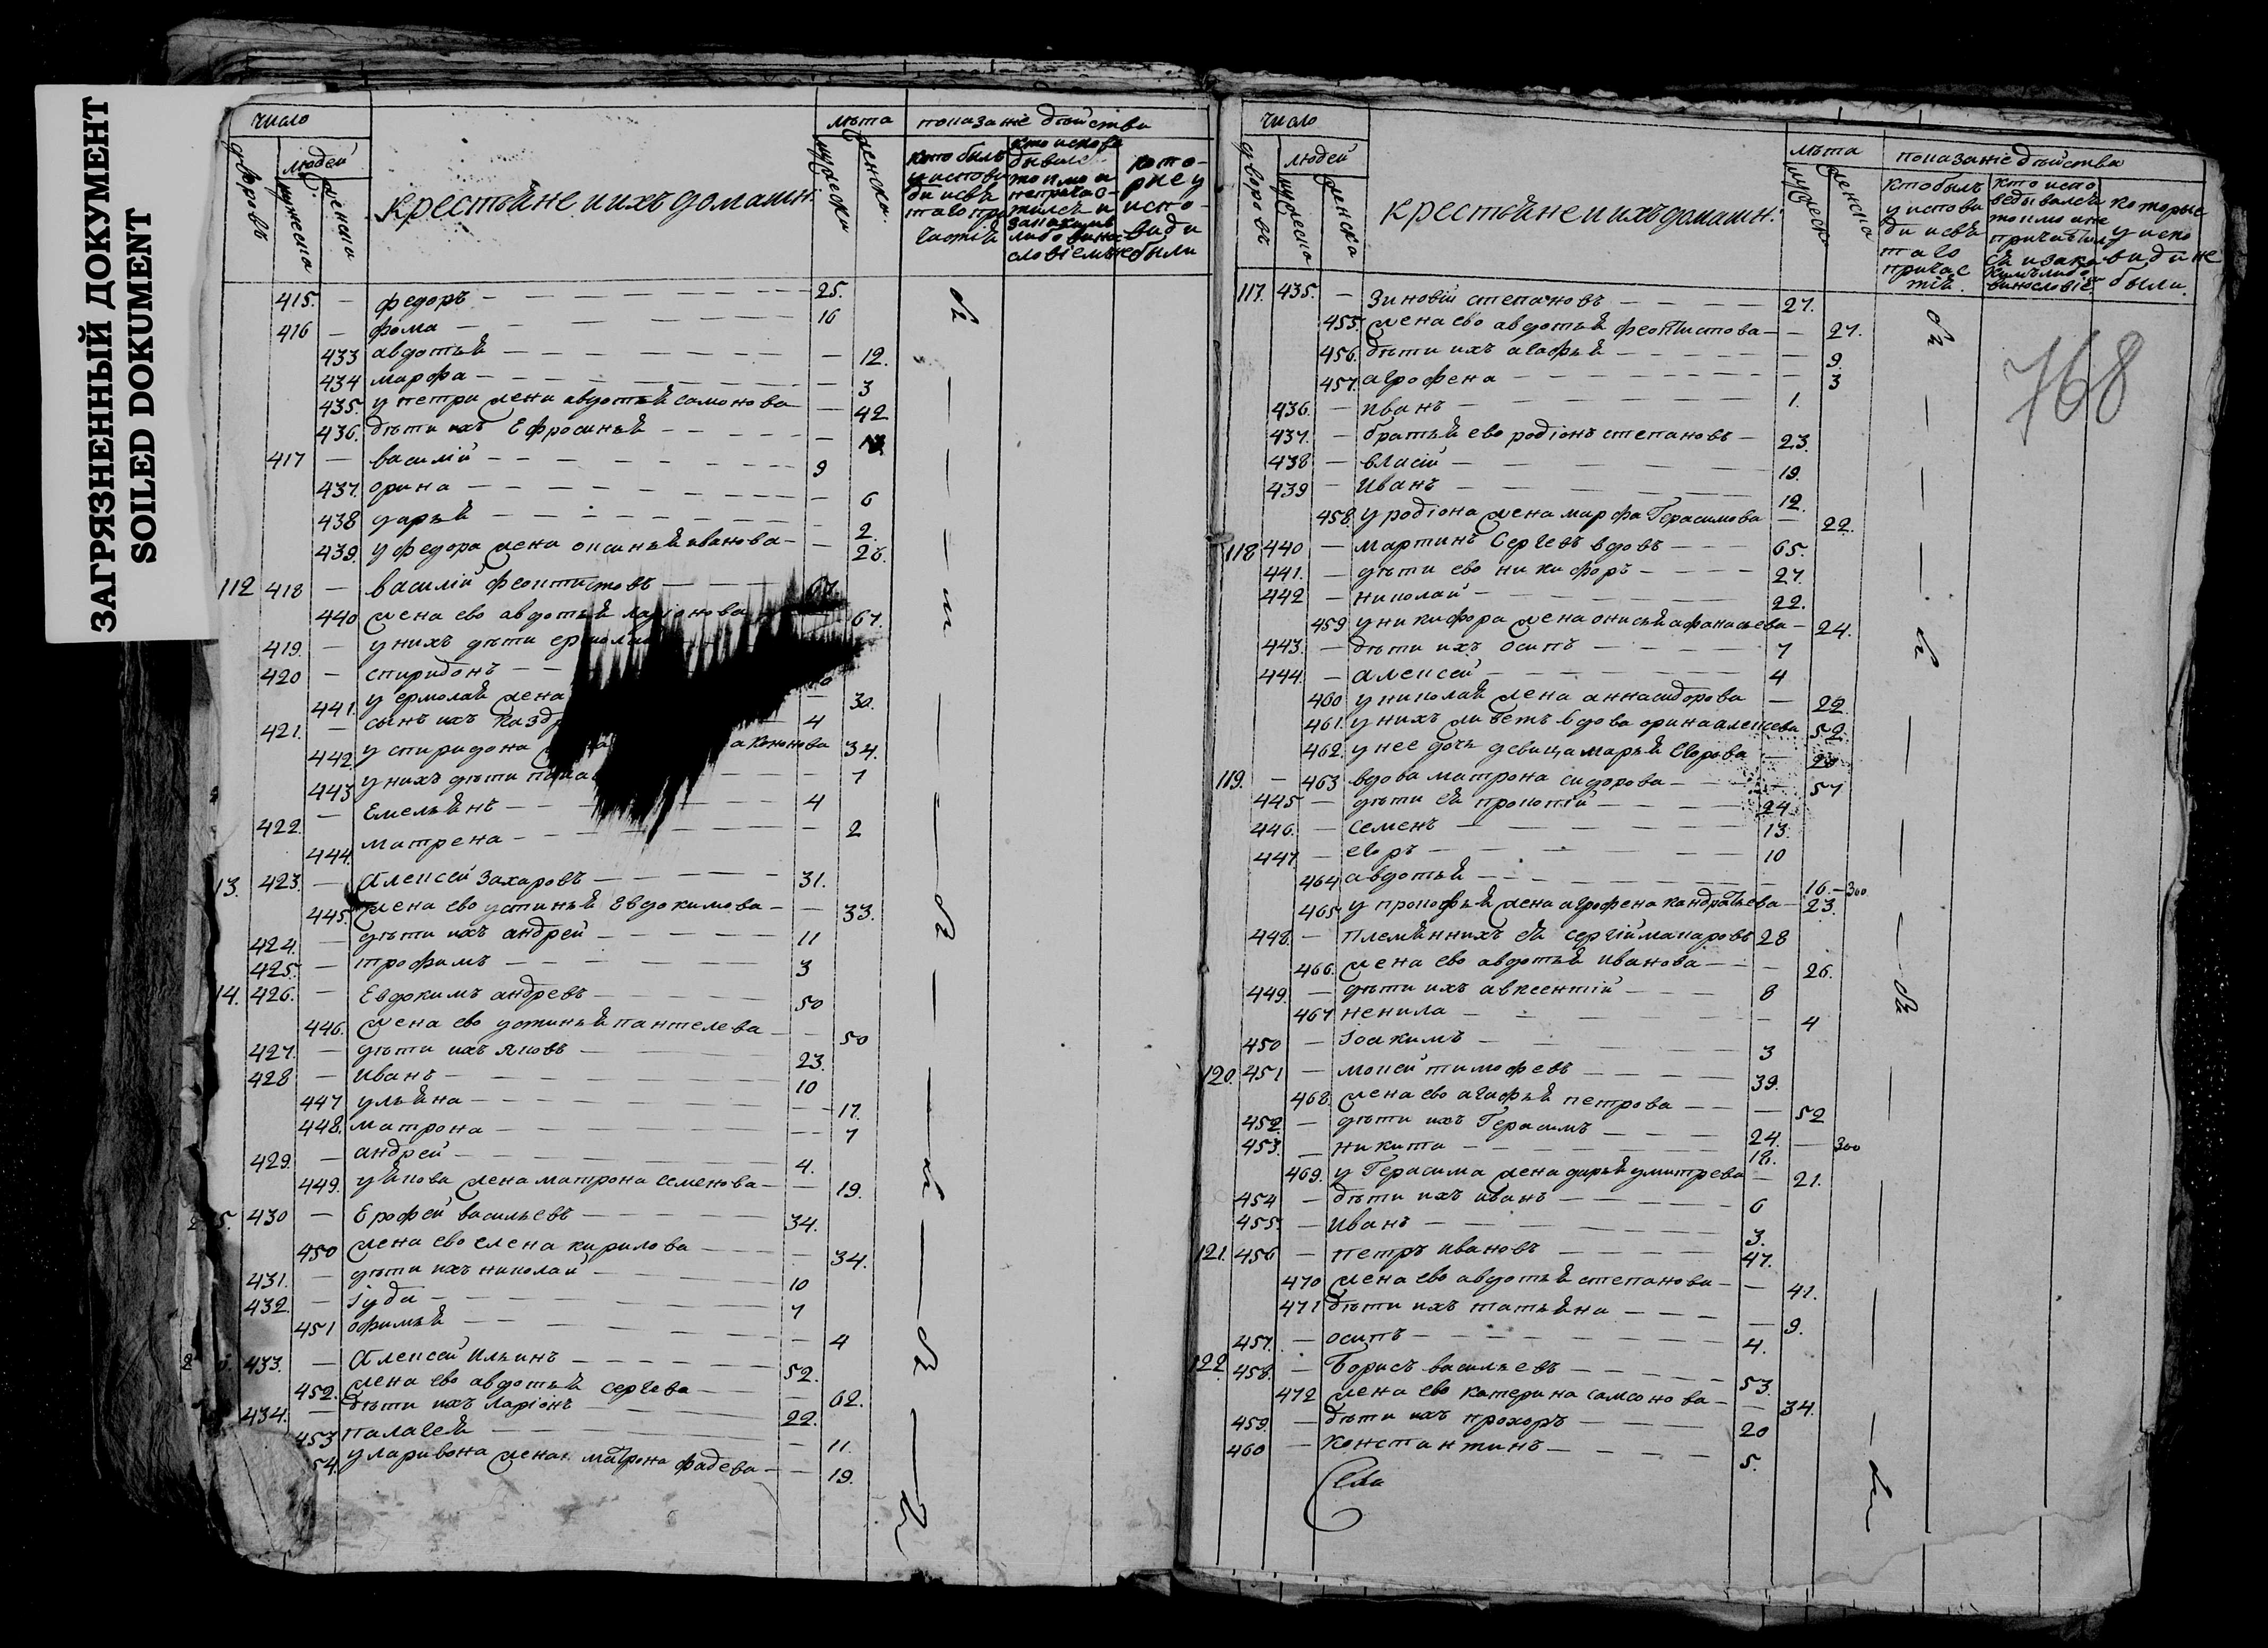 ЗАГРЯЗНЕННЫЙ ДОКУМЕНТ
SOILED DOKUMENT
число
дворовъ
людей
мужеска
женска
крестьяне и ихъ домашн:
лѣта
мужеска
женска
показанiе дѣйства
кто былъ
у испове
ди и свѣ
таго при
частiя
которые у
испо-
веди
не были
415. — федоръ — 25.
416 — фома — 16
433 авдотья — 12.
434 марфа — 3
435. у петра жена авдотья самонова — 42
436. дѣти ихъ Ефросинья —
417 — василiй — 9
437. орина — 6
438 дарья — 2.
439. у федора жена оксинья иванова — 26.
112 418 — василiй феоктистовъ —
440 жена ево авдотья ларiонова 67.
419. — у нихъ дѣти ермолай
420 — спиридонъ —
441. у ермолая жена — 30.
421. — сынъ ихъ — 4
442. у спиридона а кононова 34.
443 у нихъ дѣти — 7
422. — Емельянъ — 4
444. матрена — 2
13. 423. — Алексей Захаровъ — 31.
445. жена ево устинья Евдокимова — 33.
424. — дѣти ихъ андрей — 11
425. — трофимъ — 3
14. 426. — Евдокимъ андревъ — 50
446. жена ево устинья пантелева — 50
427. — дѣти ихъ яковъ — 23.
428 — Иванъ — 10
447 ульяна — 17.
448. матрона — 7
429. — андрей — 4.
449. у якова жена матрона семенова — 19.
5. 430 — Ерофей васильевъ — 34.
450 жена ево елена кирилова — 34.
431. — дѣти ихъ николай — 10
432. — Iуда — 7
451 офимья — 4
433. — Алексей Ильинъ — 52.
452. жена ево авдотья сергева — 62.
434. — дѣти ихъ ларiонъ — 22.
453 палагея — 11.
54. у ларивона жена матрона фадева — 19.
число
дворовъ
людей
мужеска
женска
крестьяне и ихъ домашн:
лѣта
мужеск
женска
показанiе дѣйства
кто былъ
у испове
ди и свѣ
таго
причас
тiя.
кто испо
ведывался
токмо и не
причастил
ся и за ка
кимъ либо
винословiе.
которые
у испо
веди не
были.
768
117. 435. — Зиновiй степановъ — 27.
455. жена ево авдотья феоктистова — 27.
456. дѣти ихъ агафья — 9.
457. агрофена — 3
436. — иванъ — 1.
437. — братья ево родiонъ степановъ — 23.
438 — власiй — 19.
439 — Иванъ — 12.
458. у родiона жена марфа Герасимова — 22.
118 440 — мартинъ Сергевъ вдовъ — 65.
441. — дѣти ево никифоръ — 27.
442 — николай — 22.
459 у никифора жена онисья афанасьева — 24.
443. — дѣти ихъ осипъ — 7
444. — алексей — 4
460 у николая жена анна сидорова — 22.
461. у нихъ живетъ вдова орина алексева 52.
462. у нее дочь девица марья Егорова —
119. — 463 вдова матрона сидорова — 57
445 — дѣти ея прокопiй — 24.
446. — семенъ — 13.
447 — егоръ — 10
464 авдотья — 16. — 300
465. у прокофья жена агрофена кандратьева — 23.
448. — племянникъ ея сергiй макаровъ 28
466. жена ево авдотья иванова — 26.
449. — дѣти ихъ авксентiй — 8
467 ненила — 4
450 — Iоакимъ — 3
120. 451 — моисей тимофевъ — 39.
468. жена ево агафья петрова — 52
452. — дѣти ихъ Герасимъ — 24. —
453. — никита — 18. 300
469. у Герасима жена дарья умитрева — 21.
454 — дѣти ихъ иванъ — 6
455. — Иванъ — 3.
121. 456 — петръ ивановъ — 47.
470 жена ево авдотья степанова — 41.
471 дѣти ихъ татьяна — 9.
457. — осипъ — 4.
122 458. — Борисъ васильевъ — 53.
472 жена ево катерина самсонова — 34.
459. — дѣти ихъ прохоръ — 20
460 — константинъ — 5.